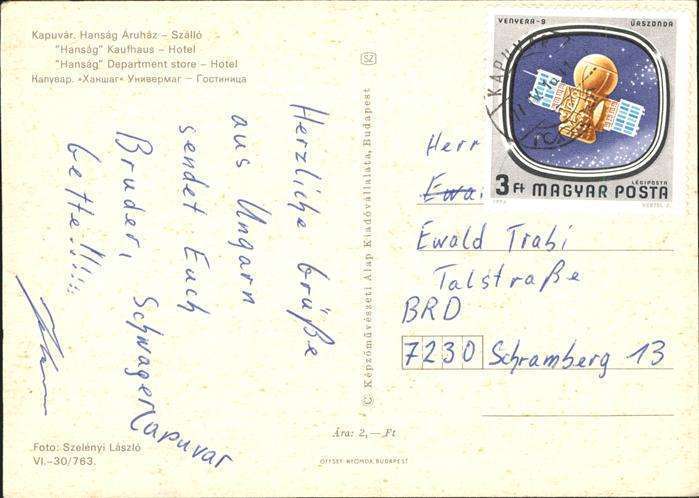 Kapuvár. Hanság Áruház – Szálló
"Hanság" Kaufhaus – Hotel
"Hanság" Department store – Hotel
Капувар. «Ханшаг» Универмаг – Гостиница
Herzliche Grüße
aus Ungarn
sendet Euch
Bruder, Schwager
bette!!!!!
Kapuvar
Foto: Szelényi László
VI.–30/763.
SZ
© Képzőművészeti Alap Kiadóvállalata, Budapest
Ára: 2,— Ft
OFFSET-NYOMDA BUDAPEST
VENYERA-9 ŰRSZONDA
KAPUVÁR
3 Ft MAGYAR POSTA
LÉGIPOSTA
Herr
Ewa.
Ewald Trabi
Talstraße
BRD
7230 Schramberg 13